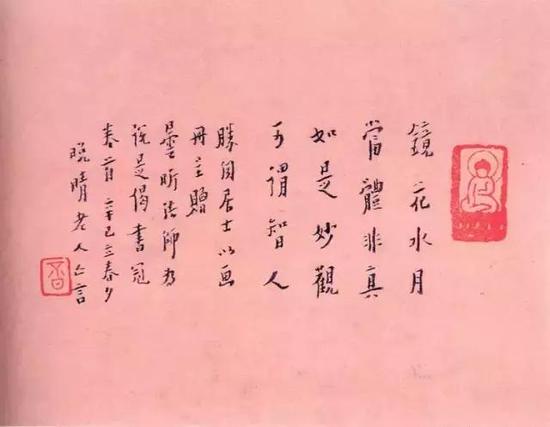 鏡花水月
當體非真
如是妙觀
可謂智人
勝 居士以画
冊 贈
曇昕法師為
說是偈書冠
卷首 辛巳立春夕
晚晴老人亡言